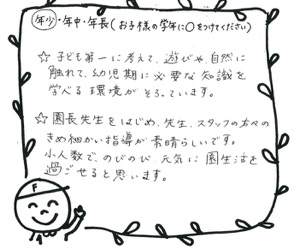 年少・年中・年長(お子様の学年に○をつけてください)
☆ 子ども第一に考えて、遊びや、自然に
触れて、幼児期に必要な知識を
学べる環境がそろっています。
☆ 園長先生をはじめ、先生、スタッフの方々の
きめ細かい指導が素晴らしいです。
小人数で、のびのび、元気に園生活を
過ごせると思います。
F